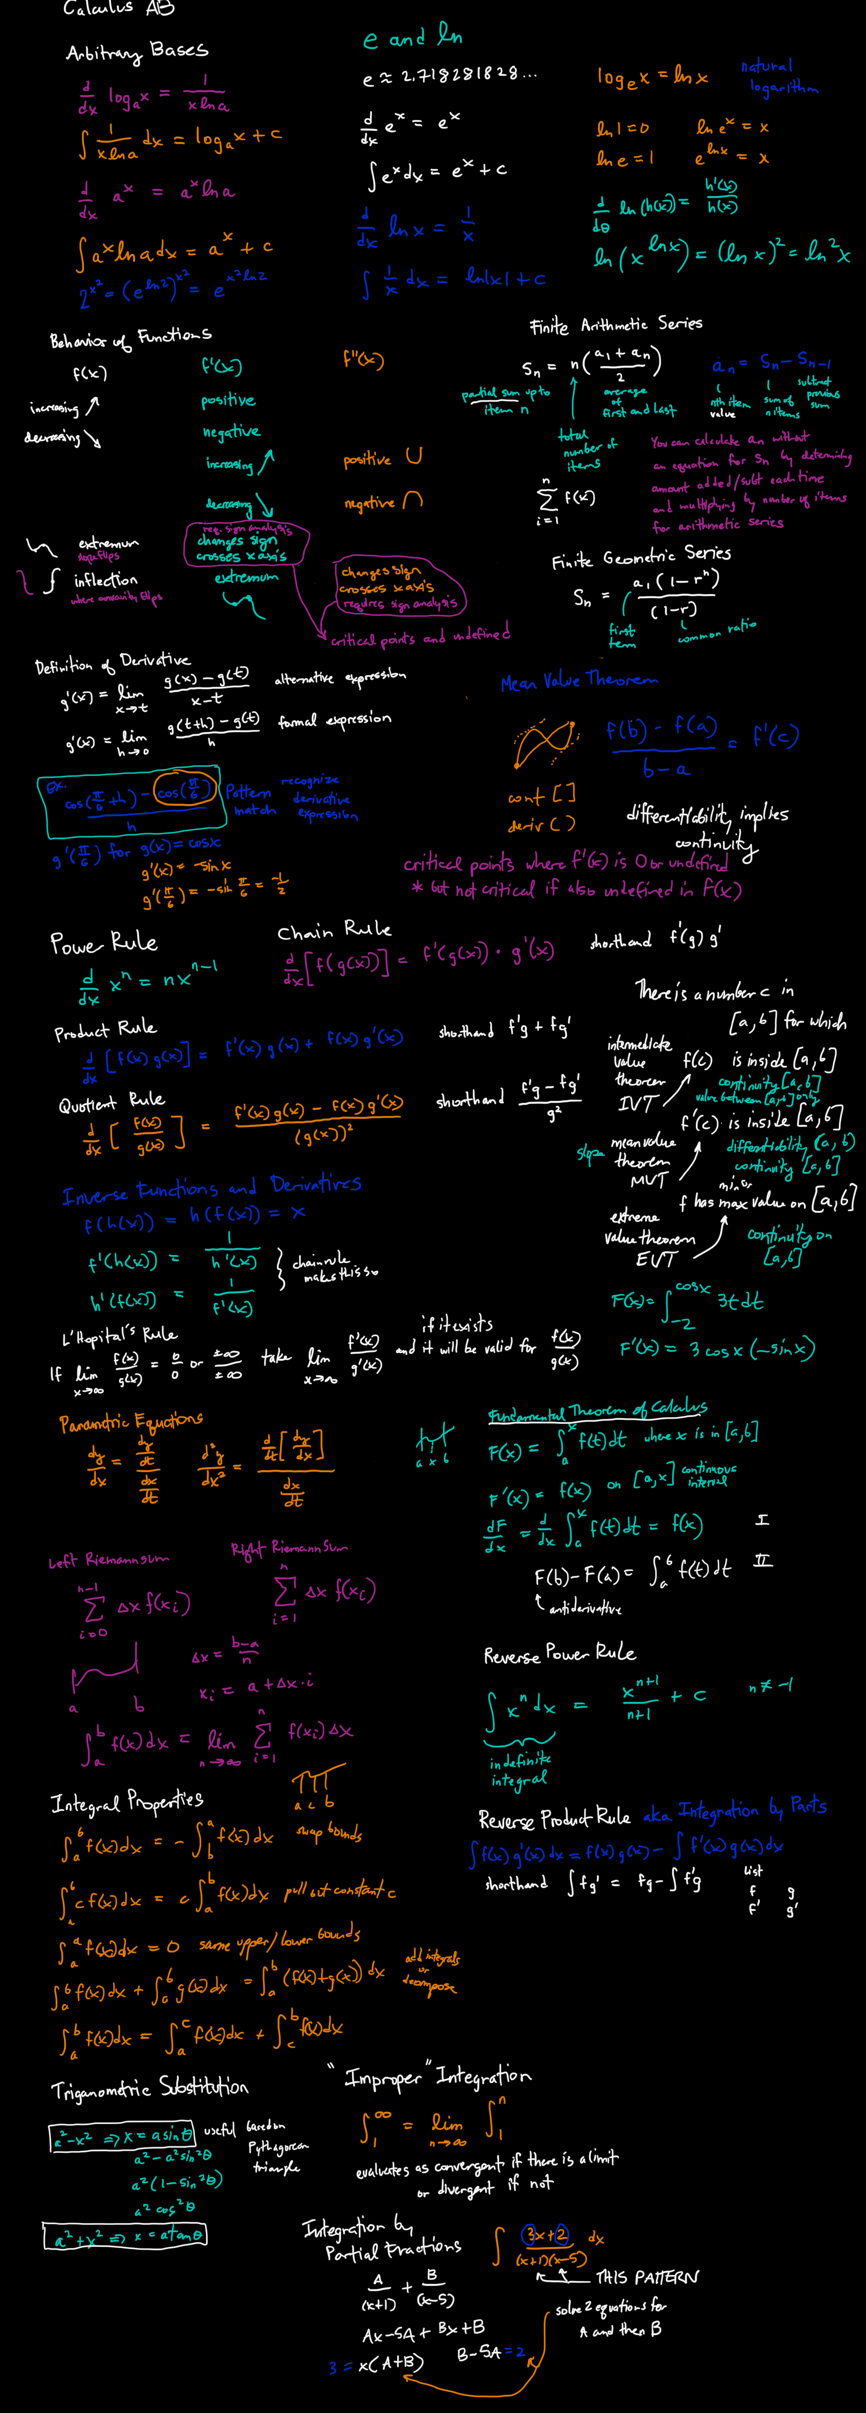 Calculus AB
Arbitrary Bases
d/dx log_a x = 1/(x ln a)
∫ 1/(x ln a) dx = log_a x + c
d/dx a^x = a^x ln a
∫ a^x ln a dx = a^x + c
2^x² = (e^ln2)^x² = e^(x² ln 2)
e and ln
e ≈ 2.718281828...
d/dx e^x = e^x
∫ e^x dx = e^x + c
d/dx ln x = 1/x
∫ 1/x dx = ln|x| + c
log_e x = ln x natural logarithm
ln 1 = 0 ln e^x = x
ln e = 1 e^(ln x) = x
d/dθ ln(h(x)) = h'(x)/h(x)
ln(x^(ln x)) = (ln x)² = ln² x
Behavior of Functions
f(x) f'(x) f''(x)
increasing ↗ positive
decreasing ↘ negative
increasing ↗ positive ∪
decreasing ↘ negative ∩
extremum
slope flips
req. sign analysis
changes sign
crosses x axis
inflection
where concavity flips
extremum
changes sign
crosses x axis
requires sign analysis
critical points and undefined
Finite Arithmetic Series
S_n = n((a_1 + a_n)/2)
partial sum up to item n
total number of items
average of first and last
a_n = S_n - S_n-1
nth item value
sum of n items
subtract previous sum
n Σ i=1 f(x)
You can calculate an without
an equation for Sn by determining
amount added/subt each time
and multiplying by number of items
for arithmetic series
Finite Geometric Series
S_n = a_1(1-r^n)/(1-r)
first term
common ratio
Definition of Derivative
g'(x) = lim x→t (g(x) - g(t))/(x-t) alternative expression
g'(x) = lim h→0 (g(t+h) - g(t))/h formal expression
ex.
(cos(π/6 + h) - cos(π/6))/h
Pattern match
recognize derivative expression
g'(π/6) for g(x) = cos x
g'(x) = -sin x
g'(π/6) = -sin π/6 = -1/2
Mean Value Theorem
(f(b) - f(a))/(b-a) = f'(c)
cont [ ]
deriv ( )
differentiability implies
continuity
critical points where f'(x) is 0 or undefined
* but not critical if also undefined in f(x)
Power Rule
d/dx x^n = nx^(n-1)
Chain Rule
d/dx [f(g(x))] = f'(g(x)) · g'(x)
shorthand f'(g) g'
Product Rule
d/dx [f(x) g(x)] = f'(x) g(x) + f(x) g'(x)
shorthand f'g + fg'
Quotient Rule
d/dx [f(x)/g(x)] = (f'(x) g(x) - f(x) g'(x))/(g(x))²
shorthand (f'g - fg')/g²
There is a number c in
[a,b] for which
intermediate value theorem IVT
f(c) is inside [a,b]
continuity [a,b]
value between [a,b] only
f'(c) is inside [a,b]
slope mean value theorem MVT
differentiability (a,b)
continuity [a,b]
min or
f has max value on [a,b]
extreme value theorem EVT
continuity on [a,b]
Inverse Functions and Derivatives
f(h(x)) = h(f(x)) = x
f'(h(x)) = 1/h'(x)
h'(f(x)) = 1/f'(x)
chain rule makes this so
F(x) = ∫_-2^cosx 3t dt
F'(x) = 3 cos x (-sin x)
L'Hopital's Rule
If lim x→∞ f(x)/g(x) = 0/0 or ±∞/±∞ take lim x→∞ f'(x)/g'(x)
if it exists
and it will be valid for f(x)/g(x)
Parametric Equations
dy/dx = (dy/dt)/(dx/dt)
d²y/dx² = (d/dt [dy/dx])/(dx/dt)
a x b
Fundamental Theorem of Calculus
F(x) = ∫_a^x f(t) dt where x is in [a,b]
F'(x) = f(x) on [a,x] continuous interval
dF/dx = d/dx ∫_a^x f(t) dt = f(x) I
F(b) - F(a) = ∫_a^b f(t) dt II
antiderivative
Left Riemann sum
n-1 Σ i=0 Δx f(x_i)
Right Riemann sum
n Σ i=1 Δx f(x_i)
a b
Δx = (b-a)/n
x_i = a + Δx · i
∫_a^b f(x) dx = lim n→∞ n Σ i=1 f(x_i) Δx
Reverse Power Rule
∫ x^n dx = x^(n+1)/(n+1) + c n ≠ -1
indefinite integral
Integral Properties
a c b
∫_a^b f(x) dx = -∫_b^a f(x) dx swap bounds
∫_a^b c f(x) dx = c ∫_a^b f(x) dx pull out constant c
∫_a^a f(x) dx = 0 same upper/lower bounds
∫_a^b f(x) dx + ∫_a^b g(x) dx = ∫_a^b (f(x) + g(x)) dx
add integrals or decompose
∫_a^b f(x) dx = ∫_a^c f(x) dx + ∫_c^b f(x) dx
Reverse Product Rule aka Integration by Parts
∫ f(x) g'(x) dx = f(x) g(x) - ∫ f'(x) g(x) dx
shorthand ∫ fg' = fg - ∫ f'g
list
f g
f' g'
Triganometric Substitution
a² - x² ⇒ x = a sin θ
useful based on Pythagorean triangle
a² - a² sin² θ
a² (1 - sin² θ)
a² cos² θ
a² + x² ⇒ x = a tan θ
"Improper" Integration
∫_1^∞ = lim n→∞ ∫_1^n
evaluates as convergent if there is a limit
or divergent if not
Integration by
Partial Fractions
∫ (3x+2)/((x+1)(x-5)) dx
THIS PATTERN
A/(x+1) + B/(x-5)
Ax - 5A + Bx + B
3 = x(A+B) B - 5A = 2
solve 2 equations for
A and then B